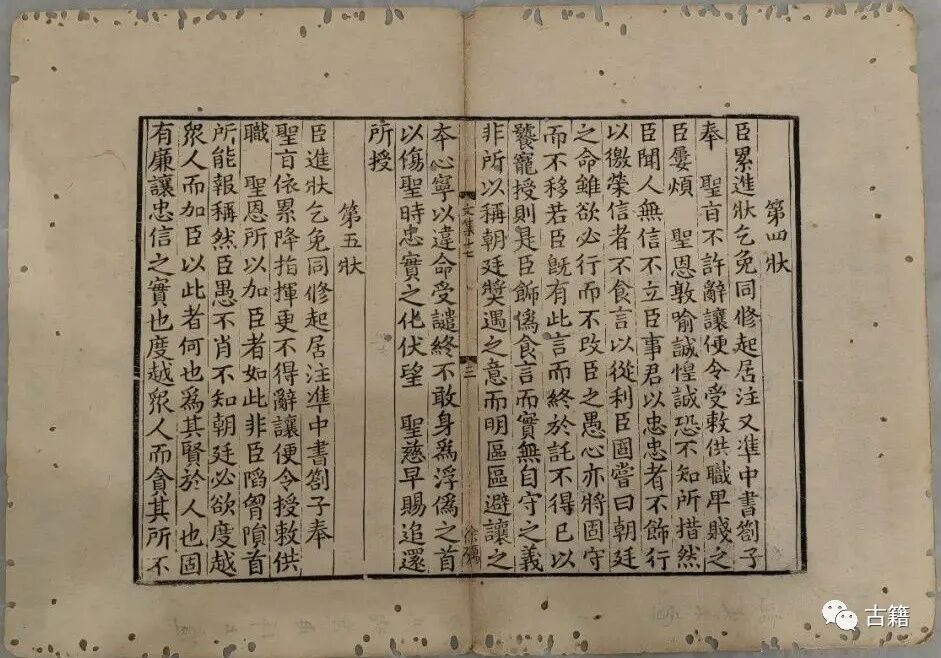 第四狀
臣累進狀乞免同修起居注又準中書劄子
奉　聖旨不許辭讓便令受敕供職卑賤之
臣屢煩　聖恩敦喻誠惶誠恐不知所措然
臣聞人無信不立臣事君以忠忠者不飾行
以徼榮信者不食言以從利臣固嘗曰朝廷
之命雖欲必行而不改臣之愚心亦將固守
而不移若臣旣有此言而終於託不得已以
饕寵授則是臣飾僞食言而實無自守之義
非所以稱朝廷奬遇之意而明區區避讓之
文集十七
三
徐禹
本心寧以違命受譴終不敢身爲浮僞之首
以傷聖時忠實之化伏望　聖慈早賜追還
所授
第五狀
臣進狀乞免同修起居注準中書劄子奉
聖旨依累降指揮更不得辭讓便令授敕供
職　聖恩所以加臣者如此非臣蹈曾隕首
所能報稱然臣愚不肖不知朝廷必欲度越
衆人而加臣以此者何也爲其賢於人也固
有廉讓忠信之實也度越衆人而貪其所不
古籍